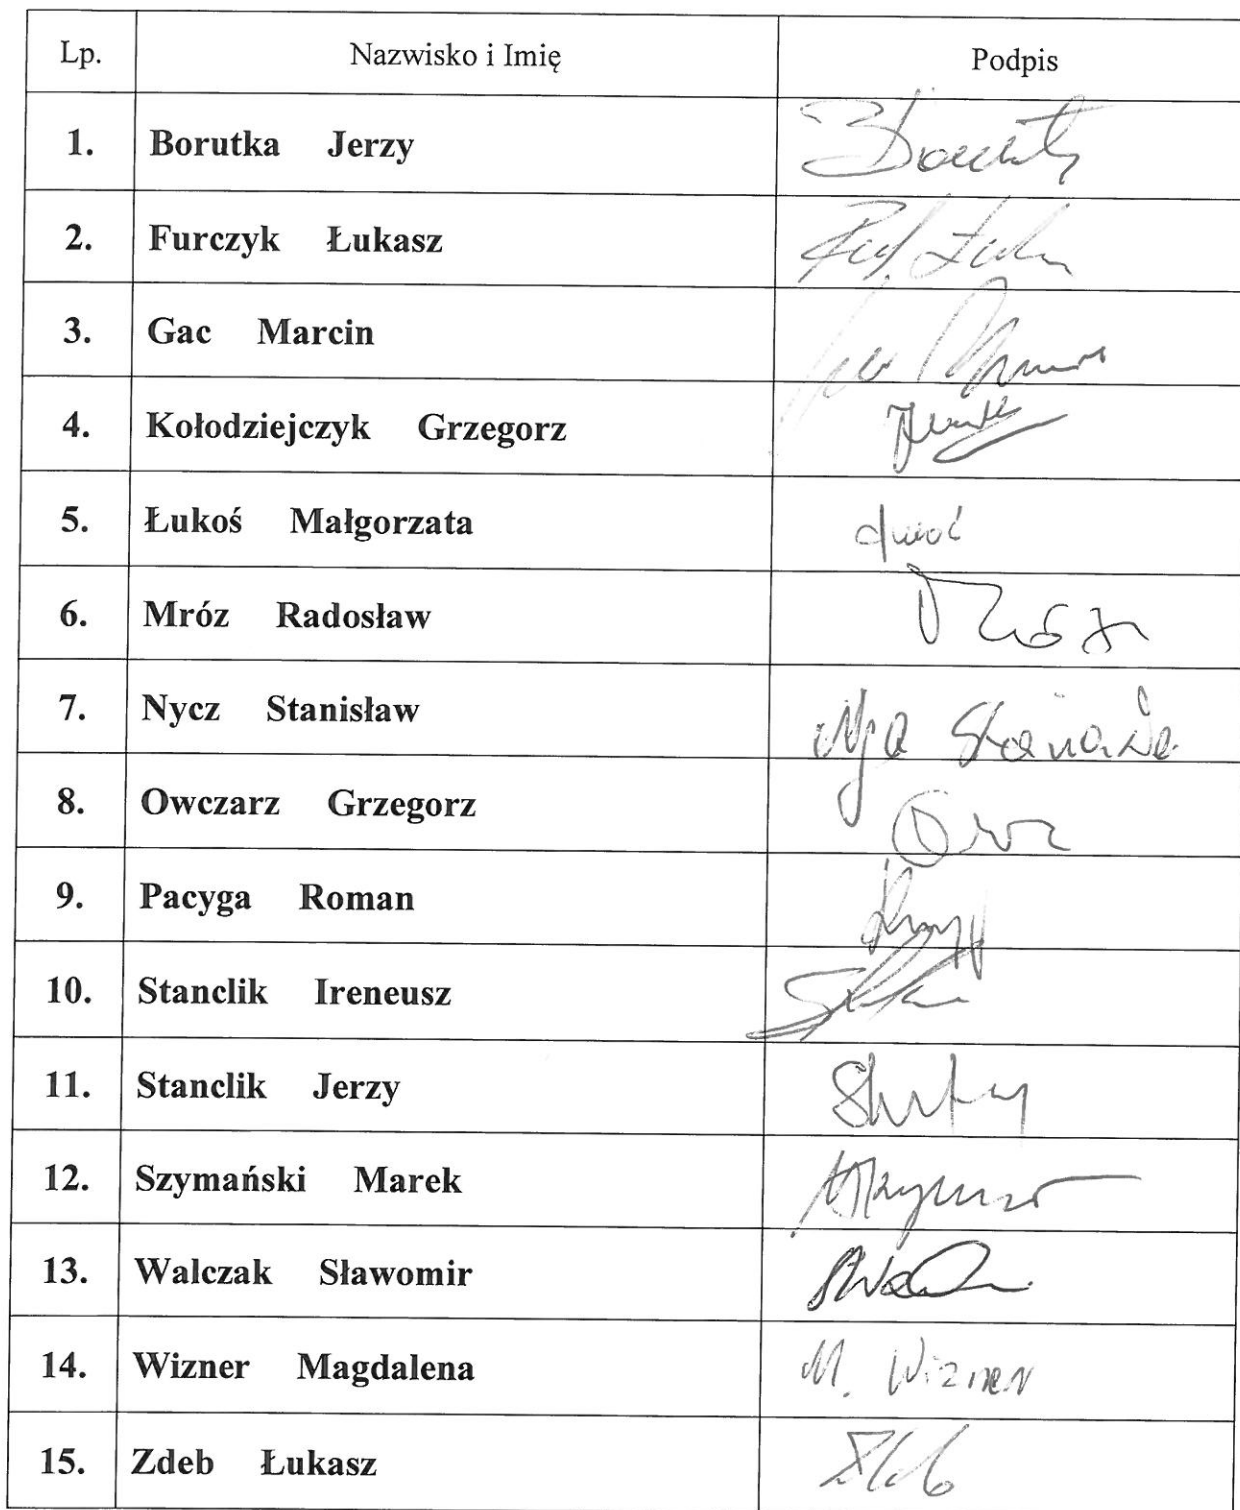 Lp. Nazwisko i Imię Podpis
1. Borutka Jerzy
2. Furczyk Łukasz
3. Gac Marcin
4. Kołodziejczyk Grzegorz
5. Łukoś Małgorzata
6. Mróz Radosław
7. Nycz Stanisław
8. Owczarz Grzegorz
9. Pacyga Roman
10. Stanclik Ireneusz
11. Stanclik Jerzy
12. Szymański Marek
13. Walczak Sławomir
14. Wizner Magdalena M. Wizner
15. Zdeb Łukasz